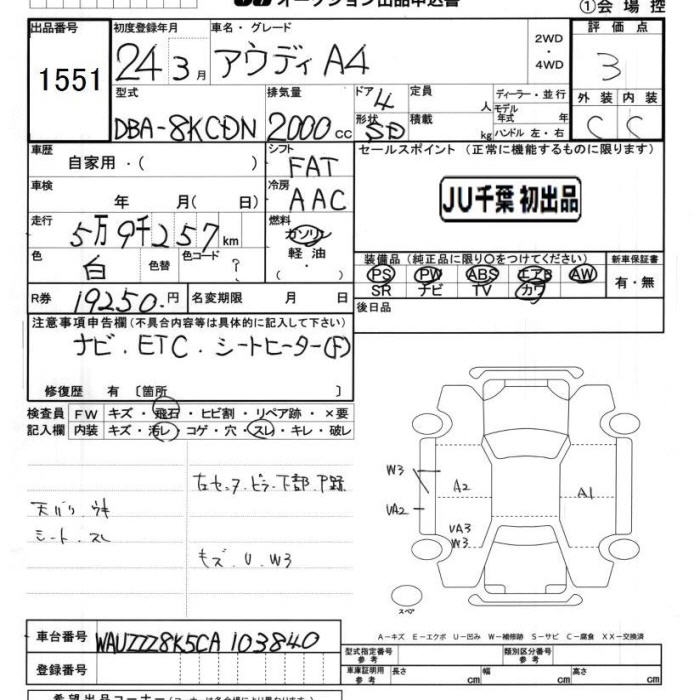 オークション出品申込書
①会場控
出品番号 初度登録年月 車名・グレード 2WD・4WD 評価点
1551 24 3月 アウディ A4 3
型式 排気量 ドア 4 定員 人 ディーラー・並行 外装 内装
DBA-8KCDN 2000cc 形状 SD 積載 kg モデル年式 年 ハンドル 左・右 C C
車歴 シフト セールスポイント（正常に機能するものに限ります）
自家用・( ) FAT
車検 冷房 JU千葉 初出品
年 月( 日) AAC
走行 燃料
5万9千257km ガソリン
色 色替 色コード 軽油 装備品（純正品に限り○をつけてください） 新車保証書
白 ? ・( ) PS PW ABS エアB AW 有・無
SR ナビ TV カワ
R券 19250.円 名変期限 月 日 後日品
注意事項申告欄（不具合内容等は具体的に記入して下さい）
ナビ．ETC．シートヒーター(F)
修復歴 有〔箇所 〕
検査員 FW キズ・飛石・ヒビ割・リペア跡・×要
記入欄 内装 キズ・汚レ・コゲ・穴・スレ・キレ・破レ
右センタ．ピラ．下部．P跡
天バリ．ウキ
シート．スレ
キズ．U．W3
W3
A2
A1
UA2
UA3
W3
スペア
A－キズ E－エクボ U－凹み W－補修跡 S－サビ C－腐食 XX－交換済
車台番号 WAUZZZ8K5CA103840
型式指定番号 参考 類別区分番号 参考
登録番号 車庫証明用 参考 長さ cm 幅 cm 高さ cm
希望出品コーナー